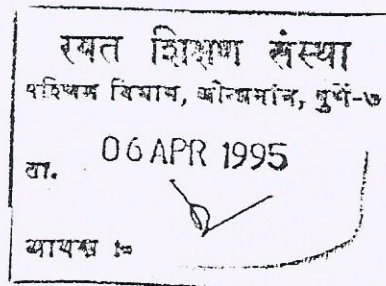 रयत शिक्षण संस्था
पश्चिम विभाग, कोरेगांव, पुणे-७
ता. 06 APR 1995
आवक :-